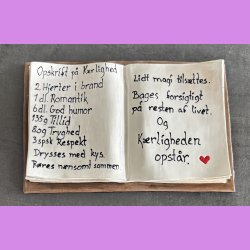 Opskrift på Kærlighed
2 Hjerter i brand
1 dl. Romantik
6 dl. God humor
135 g Tillid
80 g Tryghed
3 spsk Respekt
Drysses med kys.
Røres nænsomt sammen
Lidt magi tilsættes.
Bages forsigtigt
på resten af livet.
Og
Kærligheden
opstår.